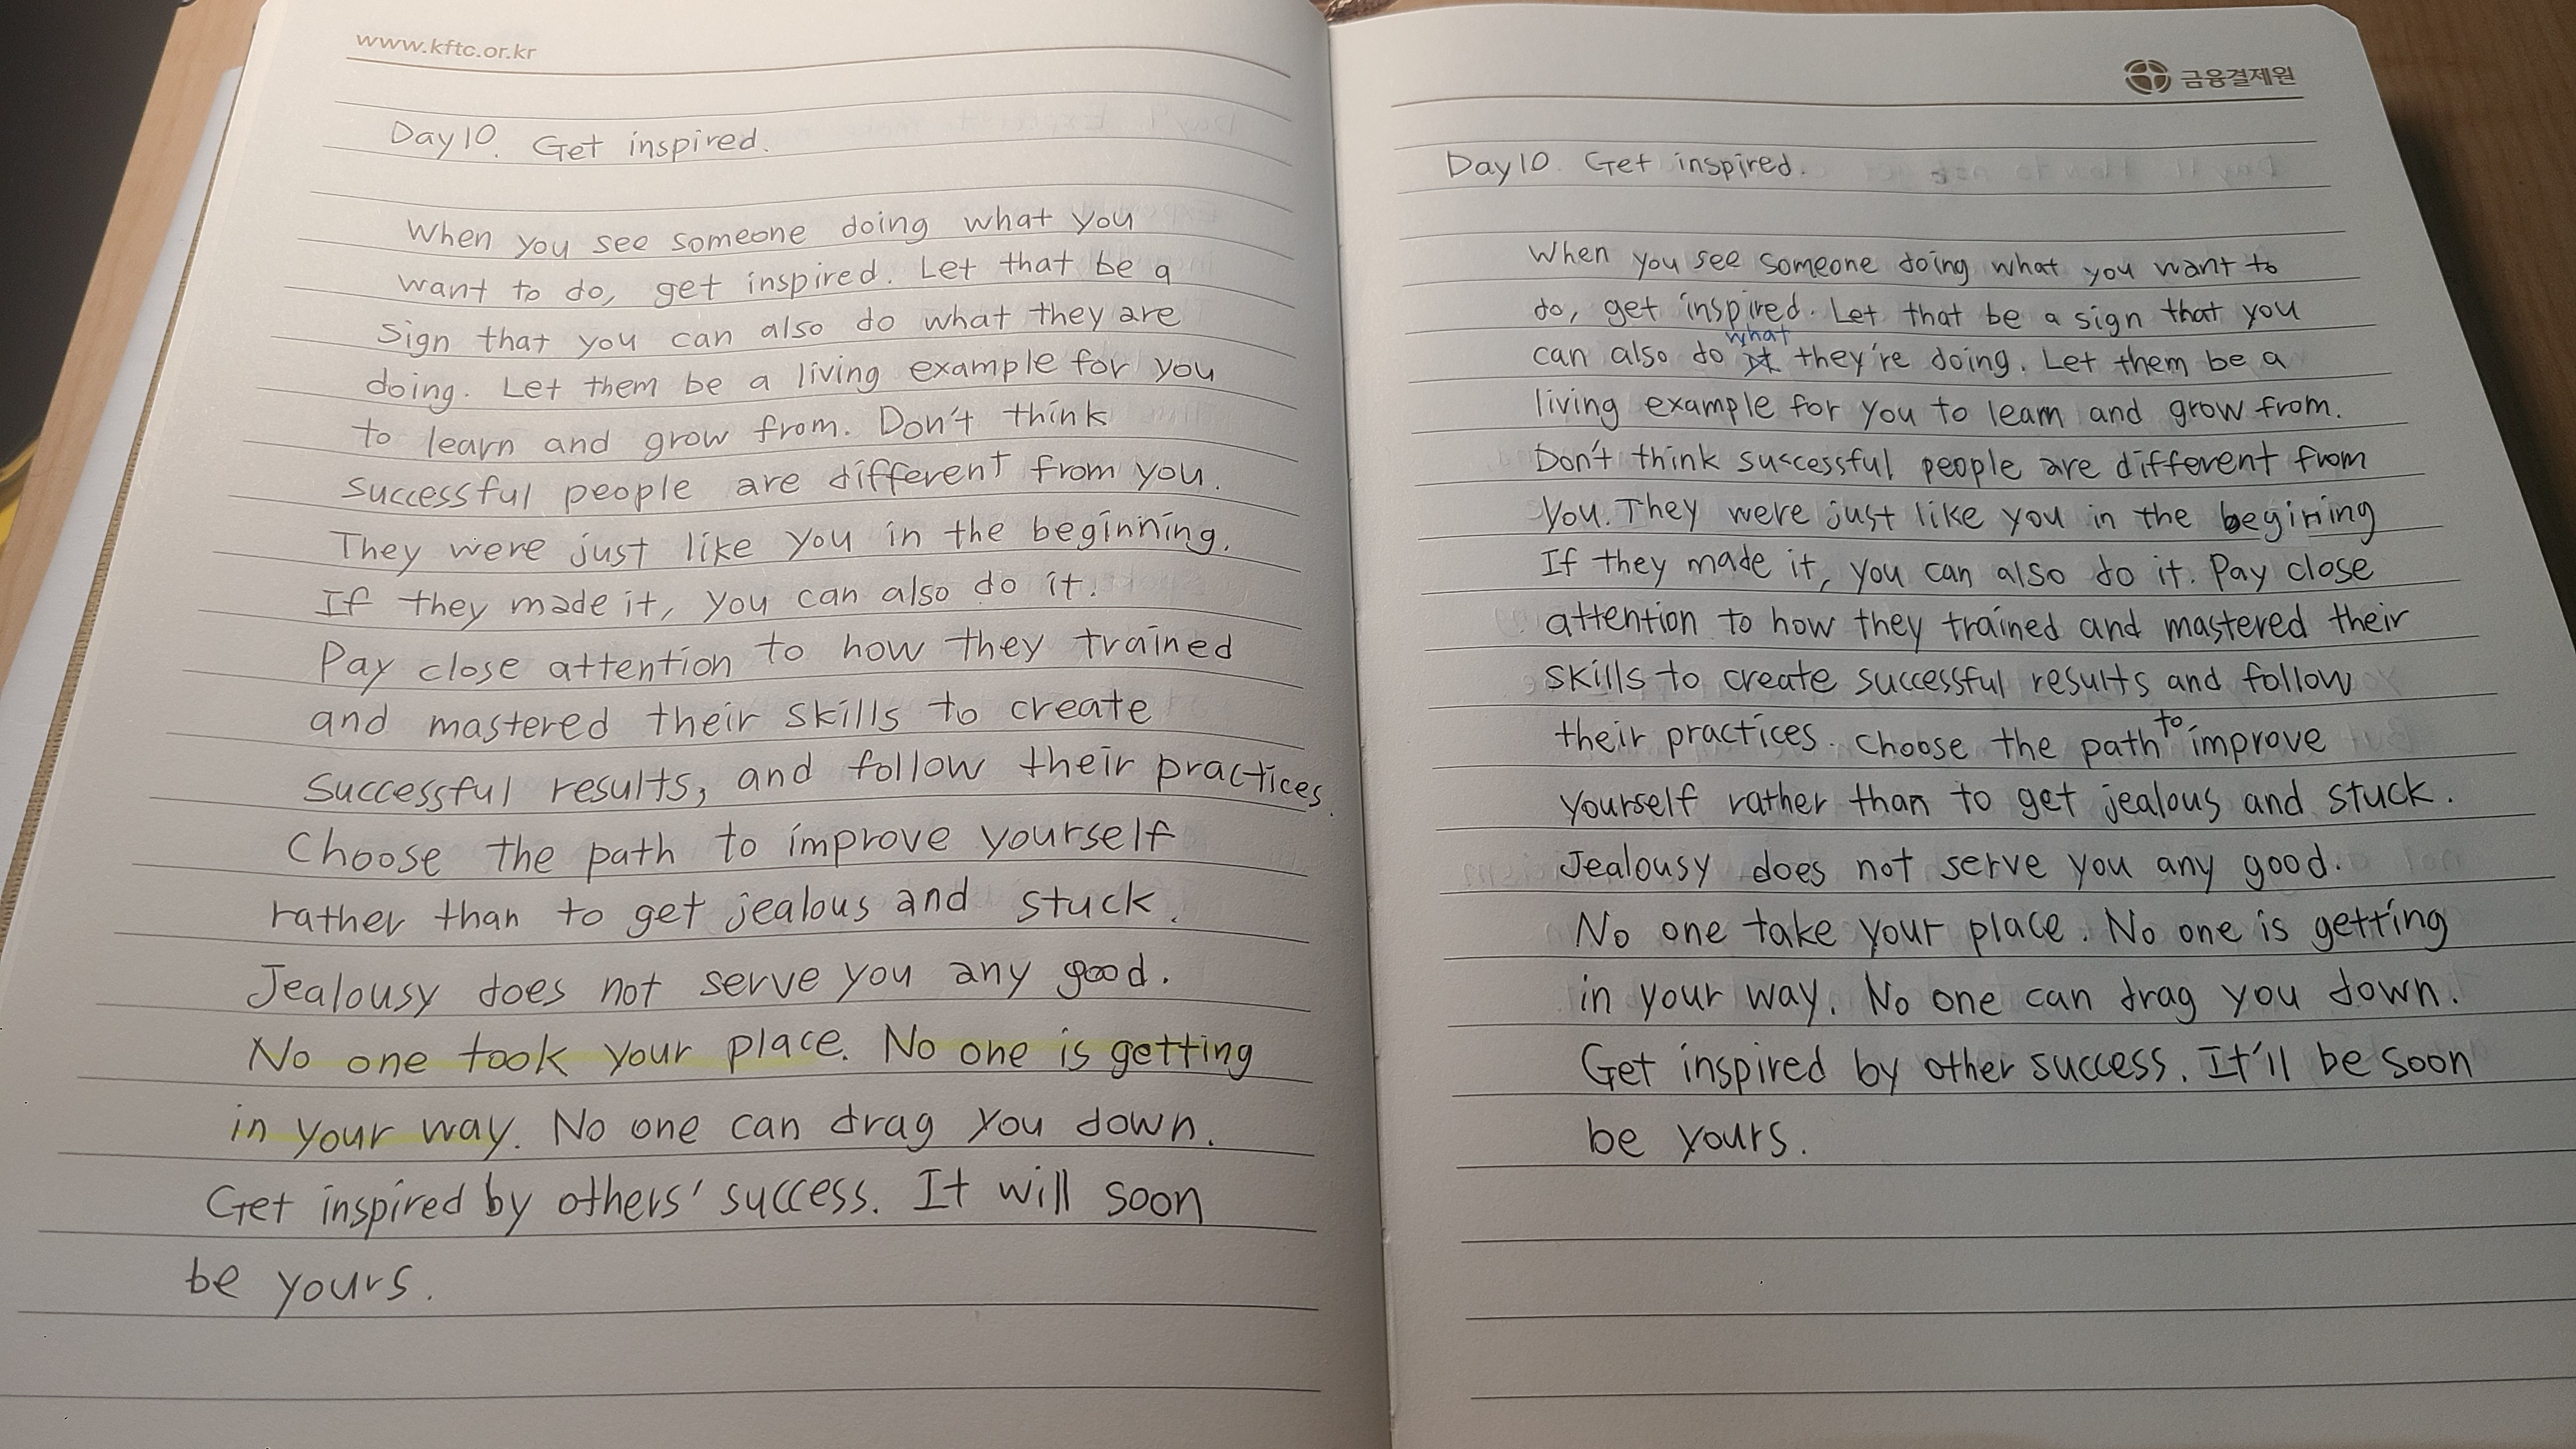 www.kftc.or.kr
Day10. Get inspired.
When you see someone doing what you
want to do, get inspired. Let that be a
sign that you can also do what they are
doing. Let them be a living example for you
to learn and grow from. Don't think
successful people are different from you.
They were just like you in the beginning.
If they made it, you can also do it.
Pay close attention to how they trained
and mastered their skills to create
successful results, and follow their practices.
Choose the path to improve yourself
rather than to get jealous and stuck.
Jealousy does not serve you any good.
No one took your place. No one is getting
in your way. No one can drag you down.
Get inspired by others' success. It will soon
be yours.
금융결제원
Day10. Get inspired.
When you see someone doing what you want to
do, get inspired. Let that be a sign that you
what
can also do they're doing. Let them be a
living example for you to learn and grow from.
Don't think successful people are different from
you. They were just like you in the begining
If they made it, you can also do it. Pay close
attention to how they trained and mastered their
skills to create successful results and follow
their practices. Choose the path to improve
yourself rather than to get jealous and stuck.
Jealousy does not serve you any good.
No one take your place. No one is getting
in your way. No one can drag you down.
Get inspired by other success. It'll be soon
be yours.